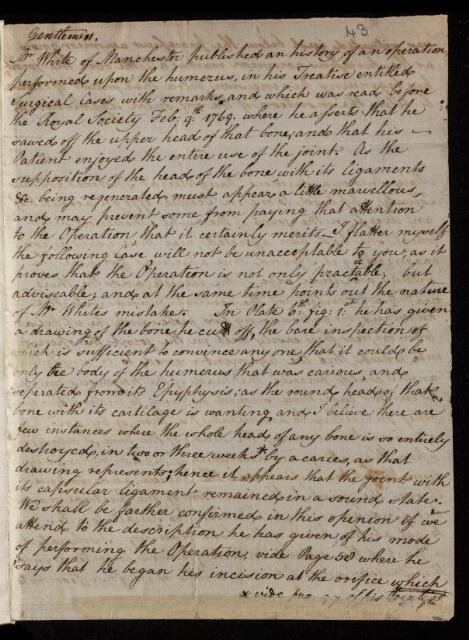 43
Gentlemen.
Mr. White of Manchester published an history of an operation
performed upon the humerus, in his Treatise entitled
Surgical Cases with remarks, and which was read before
the Royal Society Feb: 9th. 1769. where he asserts that he
sawed off the upper head of that bone, and that his
Patient enjoyed the entire use of the joint. As the
supposition of the head of the bone with its ligaments
&c. being regenerated must appear a little marvellous,
and may prevent some from paying that attention
to the Operation that it certainly merits. I flatter myself
the following Case will not be unacceptable to you, as it
proves that the Operation is not only practicable, but
adviseable; and at the same time points out the nature
of Mr. Whites mistake. In Plate 6th. fig: 1st. he has given
a drawing of the bone he cut off, the bare inspection of
which is sufficient to convince any one that it could be
only the body of the humerus that was carious and
seperated from its Epyphysis; as the round head of that
bone with its cartilage is wanting, and I believe there are
few instances where the whole head of any bone is so entirely
destroyed, in two or three weeks * by a caries, as that
drawing represents; hence it appears that the joint with
its capsular ligament remained in a sound state.
We shall be farther confirmed in this opinion if we
attend to the description he has given of his mode
of performing the Operation; vide Page 58 where he
says that he began his incision at the orifice which
* vide pag 57 of his